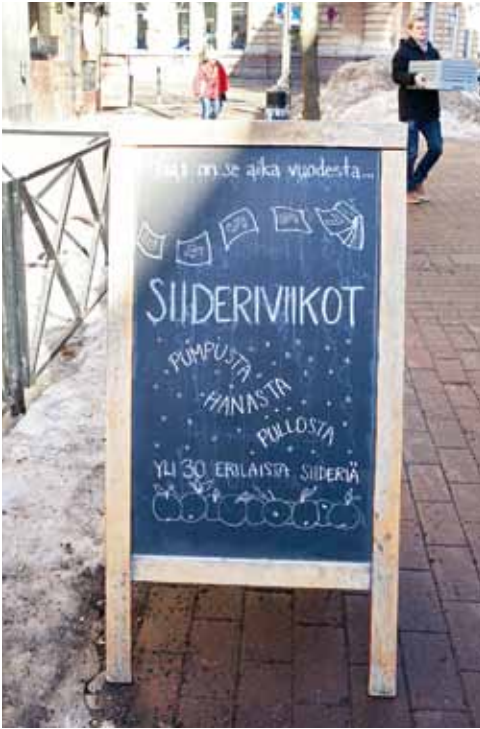 on se aika vuodesta...
SIIDERIVIIKOT
PUMPUSTA
HANASTA
PULLOSTA
YLI 30 ERILAISTA SIIDERIÄ